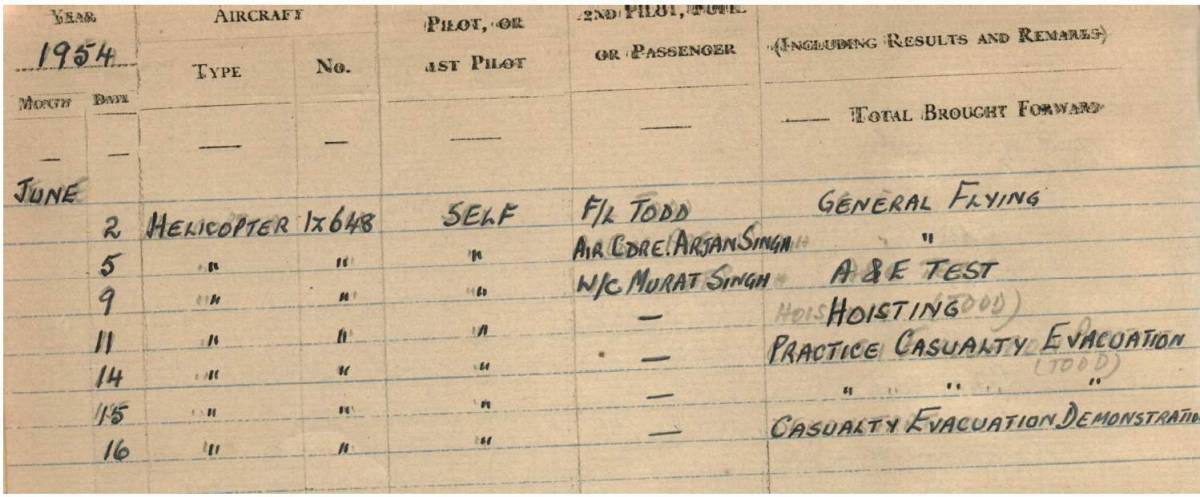 YEAR AIRCRAFT PILOT, OR 2ND PILOT, PUPIL (INCLUDING RESULTS AND REMARKS)
1954 TYPE No. 1ST PILOT OR PASSENGER
MONTH DATE — TOTAL BROUGHT FORWARD
— — — — — —
JUNE
2 HELICOPTER IZ648 SELF F/L TODD GENERAL FLYING
5 " " " AIR CDRE. ARJAN SINGH "
9 " " " W/C MURAT SINGH A & E TEST
11 " " " — HOISTING (TODD)
14 " " " — PRACTICE CASUALTY EVACUATION
(TODD)
15 " " " — " " "
16 " " " — CASUALTY EVACUATION DEMONSTRATIO